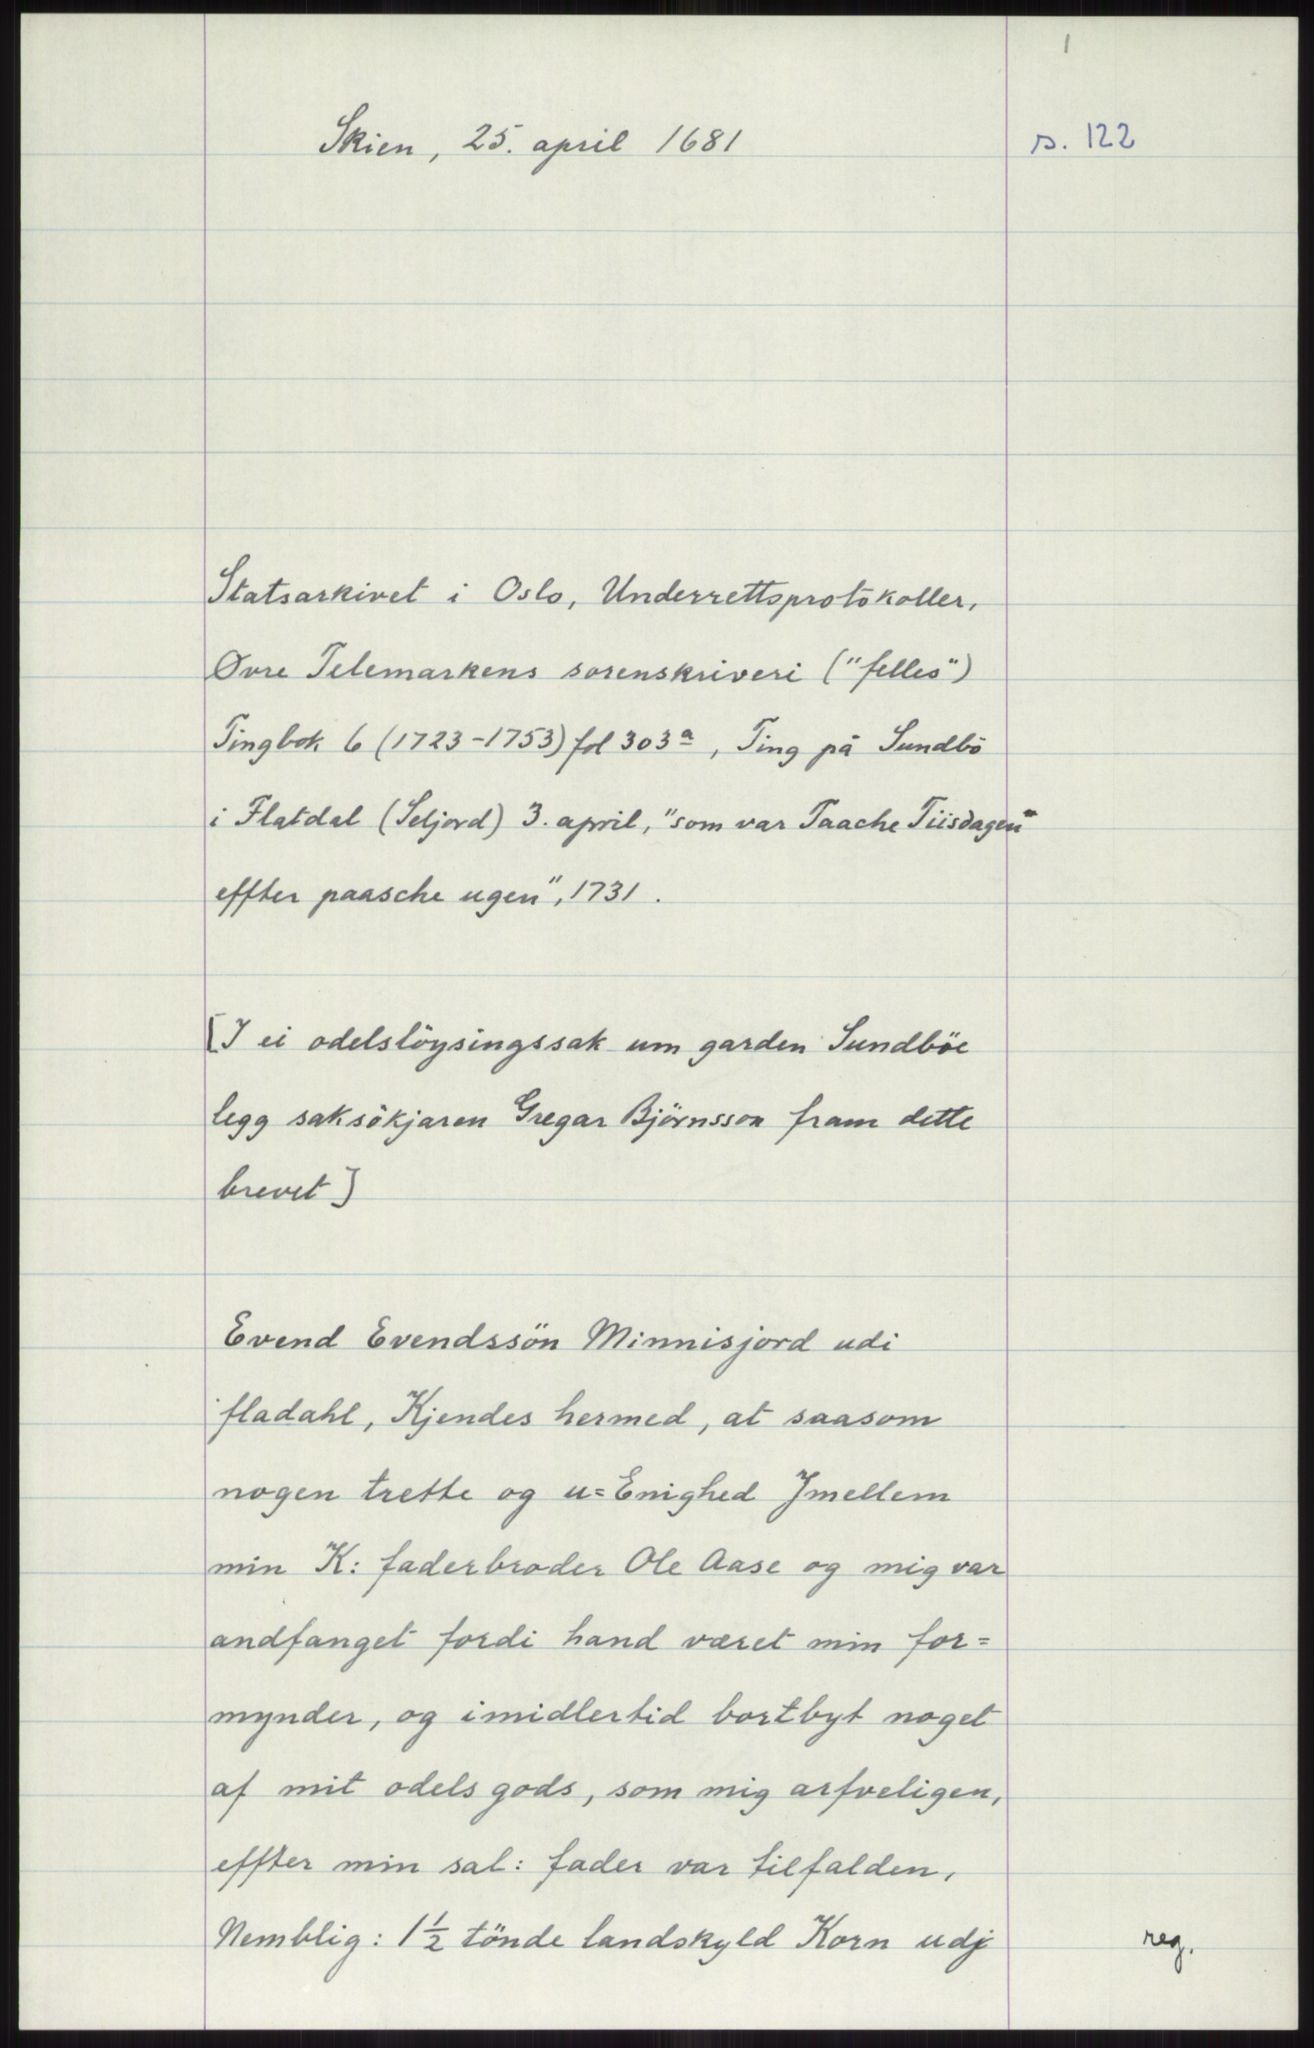 1
Skien, 25. april 1681
s. 122
Statsarkivet i Oslo, Underrettsprotokoller,
Øvre Telemarkens sorenskriveri ("felles")
Tingbok 6 (1723-1753) fol 303a, Ting på Sundbö
i Flatdal (Seljord) 3. april, "som var Taache Tiisdagen
effter paasche ugen", 1731.
[I ei odelslöysingssak um garden Sundböe
legg saksökjaren Gregar Björnsson fram dette
brevet]
Evend Evendssön Minnisjord udi
fladahl, Kjendes hermed, at saasom
nogen trette og u=Enighed Jmellem
min K: faderbroder Ole Aase og mig var
andfanget fordi hand været min for=
mynder, og imidlertid bortbyt noget
af mit odels gods, som mig arfveligen,
effter min sal: fader var tilfalden,
Nemblig: 1 1/2 tönde landskyld Korn udj
reg.